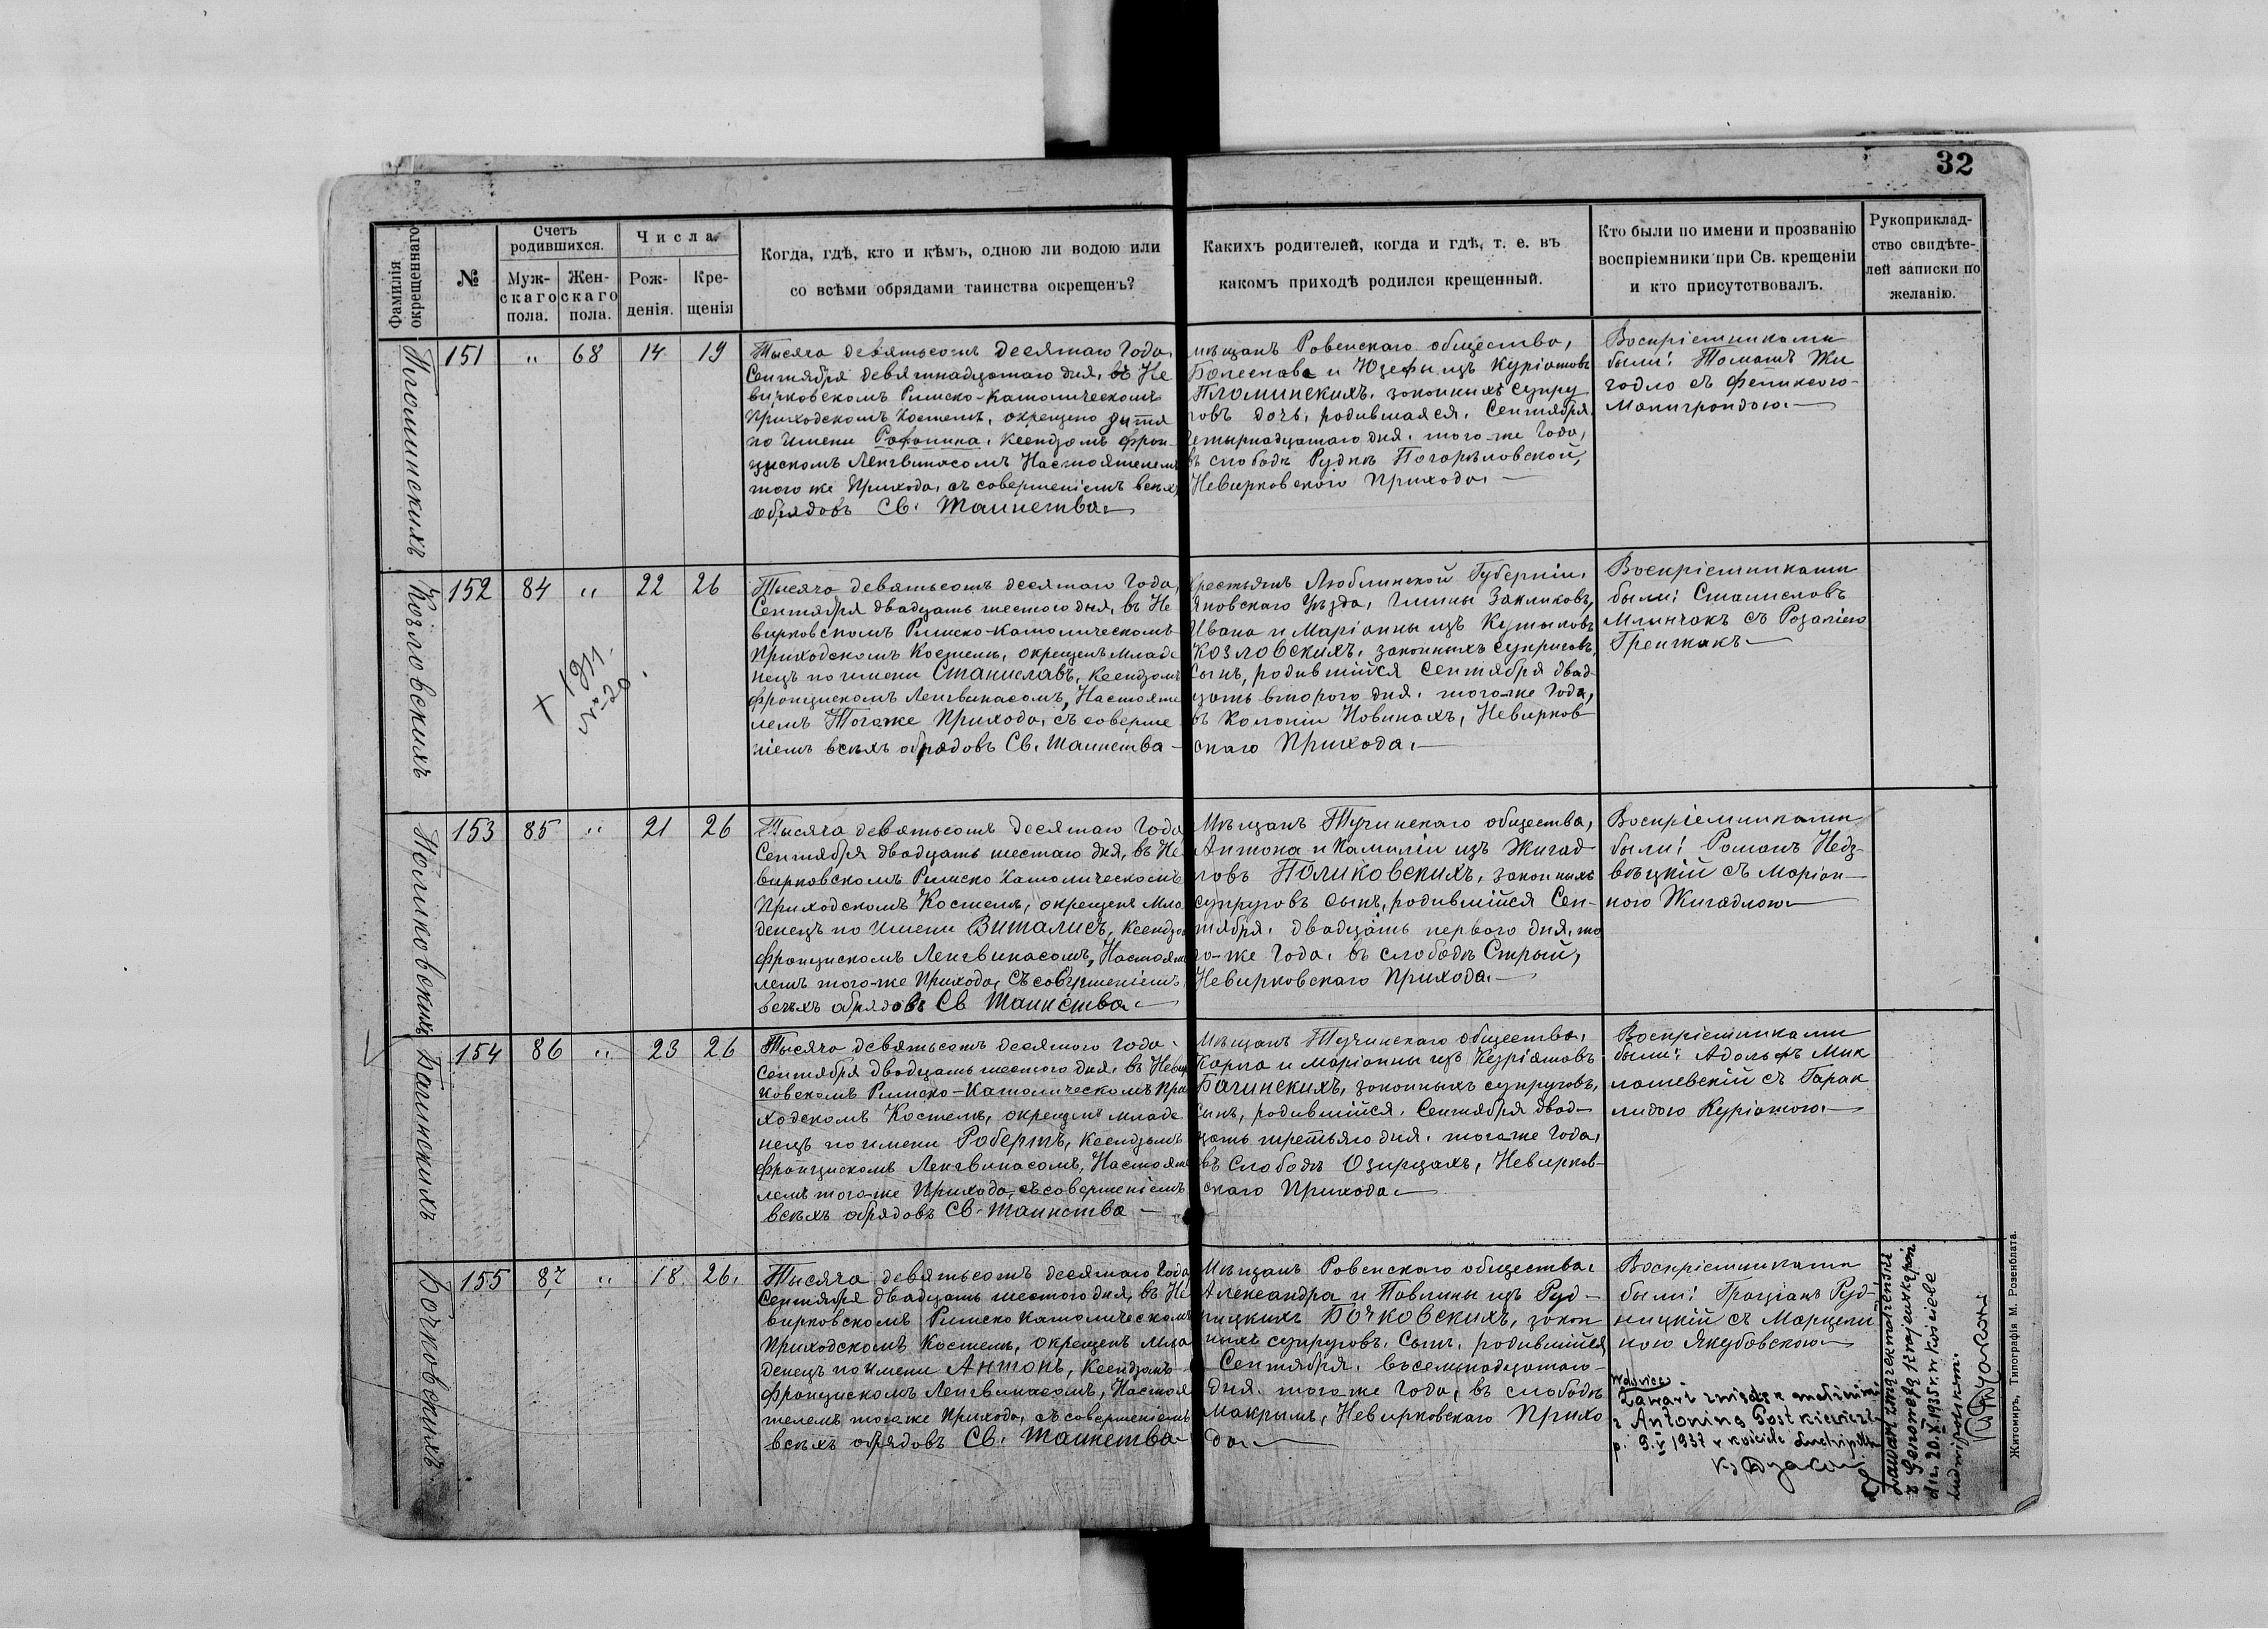 32
Фамилія окрещеннаго
№
Счетъ родившихся.
Мужскаго пола.
Женскаго пола.
Числа
Рожденія.
Крещенія
Когда, гдѣ, кто и кѣмъ, одною ли водою или
со всѣми обрядами таинства окрещенъ?
Какихъ родителей, когда и гдѣ, т. е. въ
какомъ приходѣ родился крещенный.
Кто были по имени и прозванію
воспріемники при Св. крещеніи
и кто присутствовалъ.
Рукоприклад-
ство свидѣте-
лей записки по
желанію.
Пломинскихъ
151 " 68 14 19
Тысяча девятьсотъ десятаго года,
Сентября девятнадцатаго дня, въ Не
вирковскомъ Римско-Католическомъ
Приходскомъ Костелѣ, окрещено дитя
по имени Ксендзомъ Фран-
цискомъ Ленгвинасомъ Настоятелемъ
того же Прихода, съ совершеніемъ всѣхъ
обрядовъ Св. Таинства.
мѣщанъ Ровенскаго общества,
Болеслава и Юзефы изъ Куріатовъ
Пломинскихъ, законныхъ супру
говъ дочь, родившаяся, Сентября
четырнадцатаго дня, того-же года,
въ слободѣ Рудкѣ Погорѣловской,
Невирковскаго Прихода.
Воспріемниками
были: Томашъ Жи
гадло съ
152 84 " 22 26
Козловскихъ
+ 1911.
№ 20.
Тысяча девятьсотъ десятаго года,
Сентября двадцать шестого дня, въ Не
вирковскомъ Римско-Католическомъ
Приходскомъ Костелѣ, окрещенъ младе
нецъ по имени Станиславъ, Ксендзомъ
Францискомъ Ленгвинасомъ, Настояте
лемъ Того же Прихода, съ соверше
ніемъ всѣхъ обрядовъ Св. Таинства
Крестьянъ Люблинской Губерніи,
Яновскаго Уѣзда, Гмины Закликовъ,
Ивана и Маріанны изъ Кутыловъ
Козловскихъ, законныхъ супруговъ,
Сынъ, родившійся Сентября двад-
цать второго дня, того-же года,
въ Колоніи Новинахъ, Невирков
скаго Прихода.
Воспріемниками
были: Станиславъ
Млинчакъ съ Розаліею
153 85 " 21 26
Поликовскихъ
Тысяча девятьсотъ десятаго года
Сентября двадцать шестаго дня, въ Не
вирковскомъ Римско Католическомъ
Приходскомъ Костелѣ, окрещенъ Мла
денецъ по имени Виталисъ, Ксендзо
Францискомъ Ленгвинасомъ, Настояте
лемъ того-же Прихода, съ совершеніемъ
всѣхъ обрядовъ Св Таинства
Мѣщанъ Тучинскаго общества,
Антона и Камиліи изъ Жигад
ловъ Поликовскихъ, законныхъ
супруговъ сынъ, родившійся Сен-
тября, двадцать перваго дня, то
го-же года, въ слободѣ Стрый,
Невирковскаго Прихода.
Воспріемниками
были: Романъ Недз-
вѣцкій съ Маріан-
ною Жигадлою
154 86 " 23 26
Багинскихъ
Тысяча девятьсотъ десятаго года
Сентября двадцать шестого дня, въ Невир
ковскомъ Римско-Католическомъ При
ходскомъ Костелѣ, окрещенъ младе
нецъ по имени Робертъ, Ксендзомъ
Францискомъ Ленгвинасомъ, Настояте
лемъ того-же Прихода, съ совершеніемъ
всѣхъ обрядовъ Св. Таинства
Мѣщанъ Тучинскаго общества,
Карпа и Маріанны изъ Куріатовъ
Багинскихъ, законныхъ супруговъ,
Сынъ, родившійся, Сентября двад-
цать третьяго дня, того же года,
въ Слободѣ Озирцахъ, Невирков-
скаго Прихода
Воспріемниками
были: Адольфъ Мик
лашевскій съ Гарак
лидою Куріатою.
155 87 " 18 26.
Бочковскихъ
Тысяча девятьсотъ десятаго года,
Сентября двадцать шестого дня, въ Не
вирковскомъ Римско Католическомъ
Приходскомъ Костелѣ, окрещенъ Мла
денецъ по имени Антонъ, Ксендзомъ
Францискомъ Ленгвинасомъ, Настоя
телемъ того же Прихода, съ совершеніемъ
всѣхъ обрядовъ Св. Таинства
Мѣщанъ Ровенскаго общества,
Александра и Павлины изъ Руд-
ницкихъ Бочковскихъ, закон
ныхъ супруговъ, Сынъ, родившійся
Сентября, въсемьнадцатаго
дня того же года, въ слободѣ
Мокрымъ, Невирковскаго Прихо
да.
Воспріемниками
были: Граціанъ Руд-
ницкій съ Марцели
ною Якубовскою
Wdowiec
Zawarł związek małżeński
z Antoniną
p. 9.V 1937 w kościele
Zawarł związek małżeński
z Genowefą
dn. 20.X.1935 r. w kościele
Ludwipolskim.
Житомиръ, Типографія М. Розенблата.